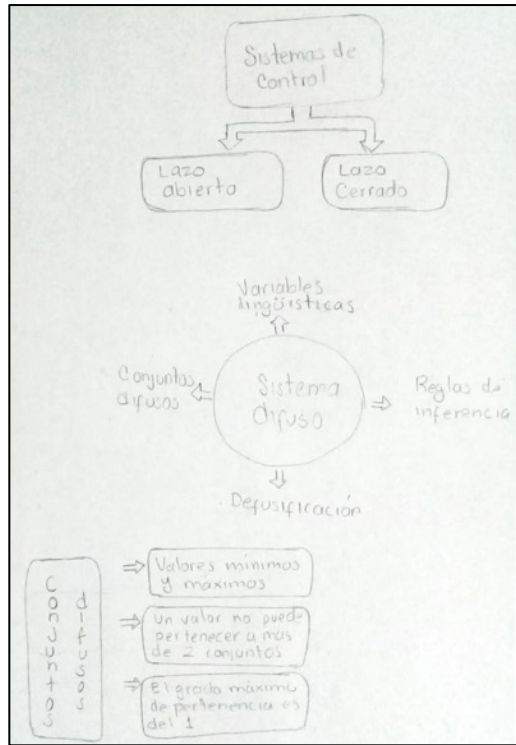 Sistemas de
Control
Lazo
abierto
Lazo
Cerrado
Variables
lingüisticas
Conjuntos
difusos
Sistema
difuso
Reglas de
inferencia
Defusificación
Conjuntos
difusos
Valores mínimos
y máximos
Un valor no puede
pertenecer a mas
de 2 conjuntos
El grado máximo
de pertenencia es
del 1